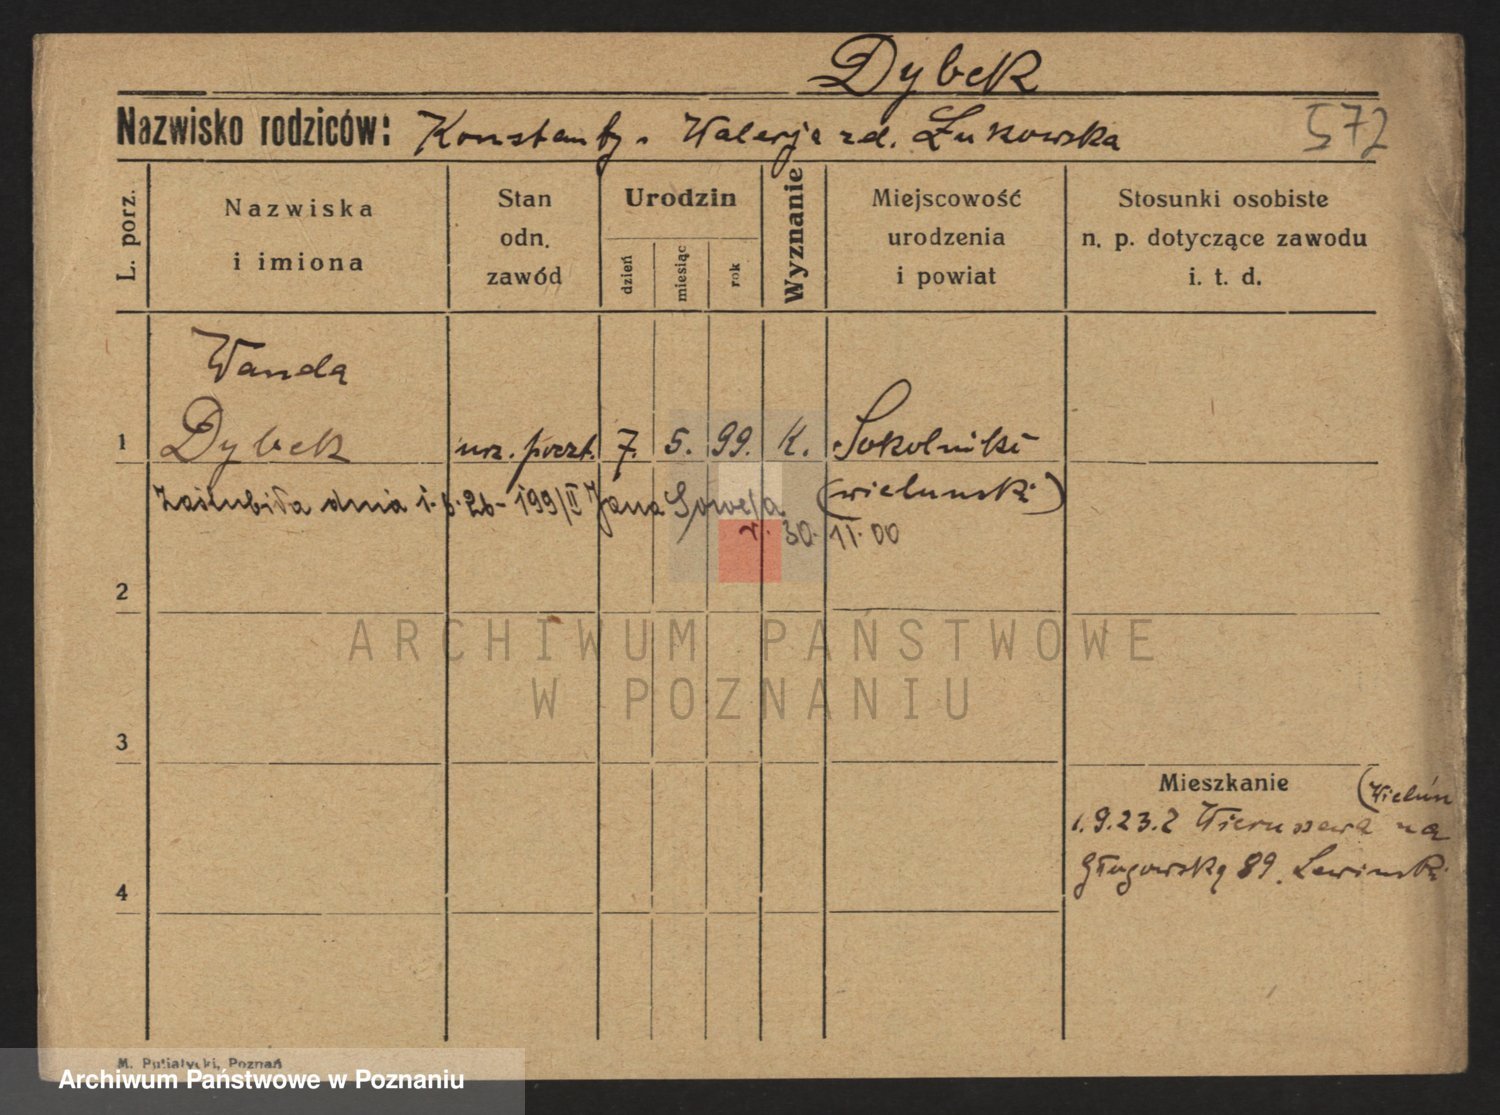 Dybek
Nazwisko rodziców: Konstanty i Walerja zd. Łukowska 572
L. porz.
Nazwiska
i imiona
Stan
odn.
zawód
Urodzin
dzień
miesiąc
rok
Wyznanie
Miejscowość
urodzenia
i powiat
Stosunki osobiste
n. p. dotyczące zawodu
i. t. d.
Wanda
1 Dybek urz. poczt. 7. 5. 99. K. Sokolniki
Zaślubiła dnia 1.6.26 - 199/II Jana (wieluński)
r. 30. 11. 00
2
ARCHIWUM PAŃSTWOWE
W POZNANIU
3
Mieszkanie (Wieluń
1.9.23. z Wieruszowa na
4 Głogowską 89. Lewinski
M. Putiatycki, Poznań
Archiwum Państwowe w Poznaniu